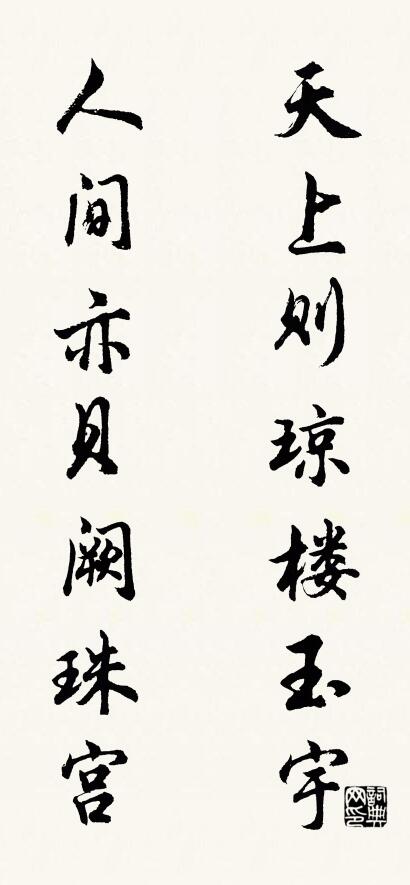 天上则琼楼玉宇
人间亦贝阙珠宫
词典网印